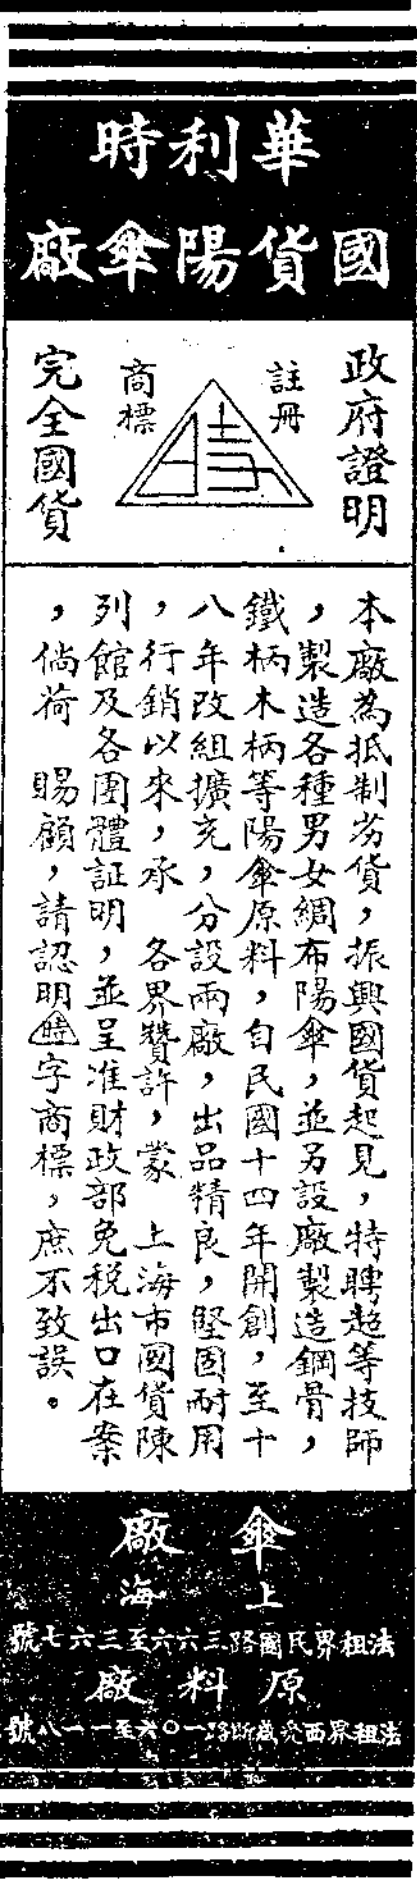 華利時
國貨陽傘廠
政府證明
註冊
商標
完全國貨
本廠為抵制劣貨，振興國貨起見，特聘超等技師
，製造各種男女綢布陽傘，並另設廠製造鋼骨，
鐵柄木柄等陽傘原料，自民國十四年開創，至十
八年改組擴充，分設兩廠，出品精良，堅固耐用
，行銷以來，承　各界贊許，蒙　上海市國貨陳
列館及各團體証明，並呈准財政部免稅出口在案
，倘荷　賜顧，請認明時字商標，庶不致誤。
傘廠
上海
法租界民國路三六六至三六七號
原料廠
法租界西愛咸斯路一〇六至一一八號